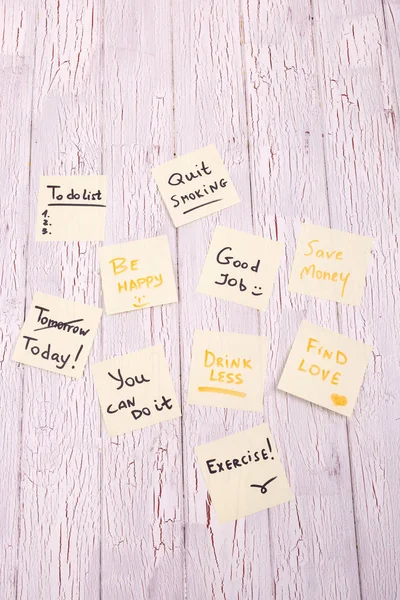 Quit
SMOKING
To do list
1.
2.
3.
BE
HAPPY
Good
Job
Save
Money
Tomorrow
Today!
YOU
CAN DO it
DRINK
LESS
FIND
LOVE
EXERCISE!